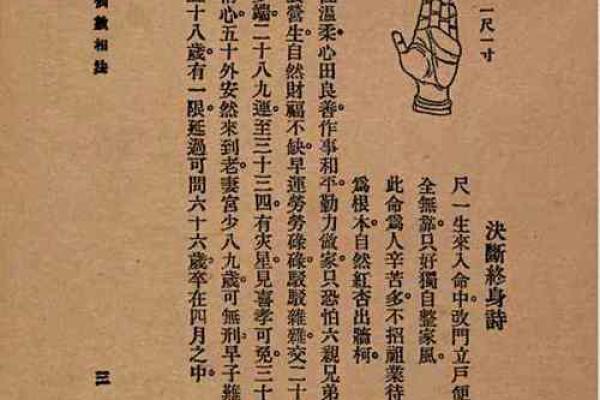 一尺一寸
決斷終身詩
尺一生來入命中。改門立戶便
全無靠只好獨自整家風。
此命爲人辛苦多。不招祖業待
爲根本自然紅杏出牆柯。
溫柔心田良善作事和平勤力做家只恐怕六親兄弟
營生自然財福不缺早運勞勞碌碌駁駁雜雜交二十
端二十八九運至三十三四有灾星見喜孝可免三十
心五十外安然來到老妻宮少八九歲可無刑早子難
十八歲有一限延過可問六十六歲卒在四月之中。
數相法
三